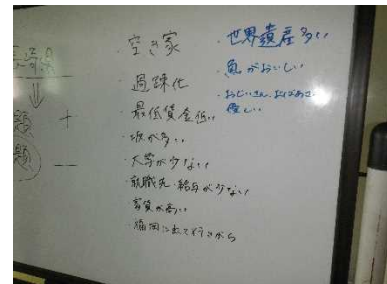 ・空き家
・過疎化
・最低賃金低い
・坂が多い
・大学が少ない
・就職先・給与が少ない
・家賃が高い
・福岡
・世界遺産多い
・魚がおいしい
・おじいさん、おばあさん
優しい
題
＋
題
－